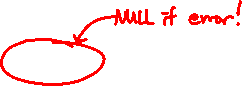 NULL if error!